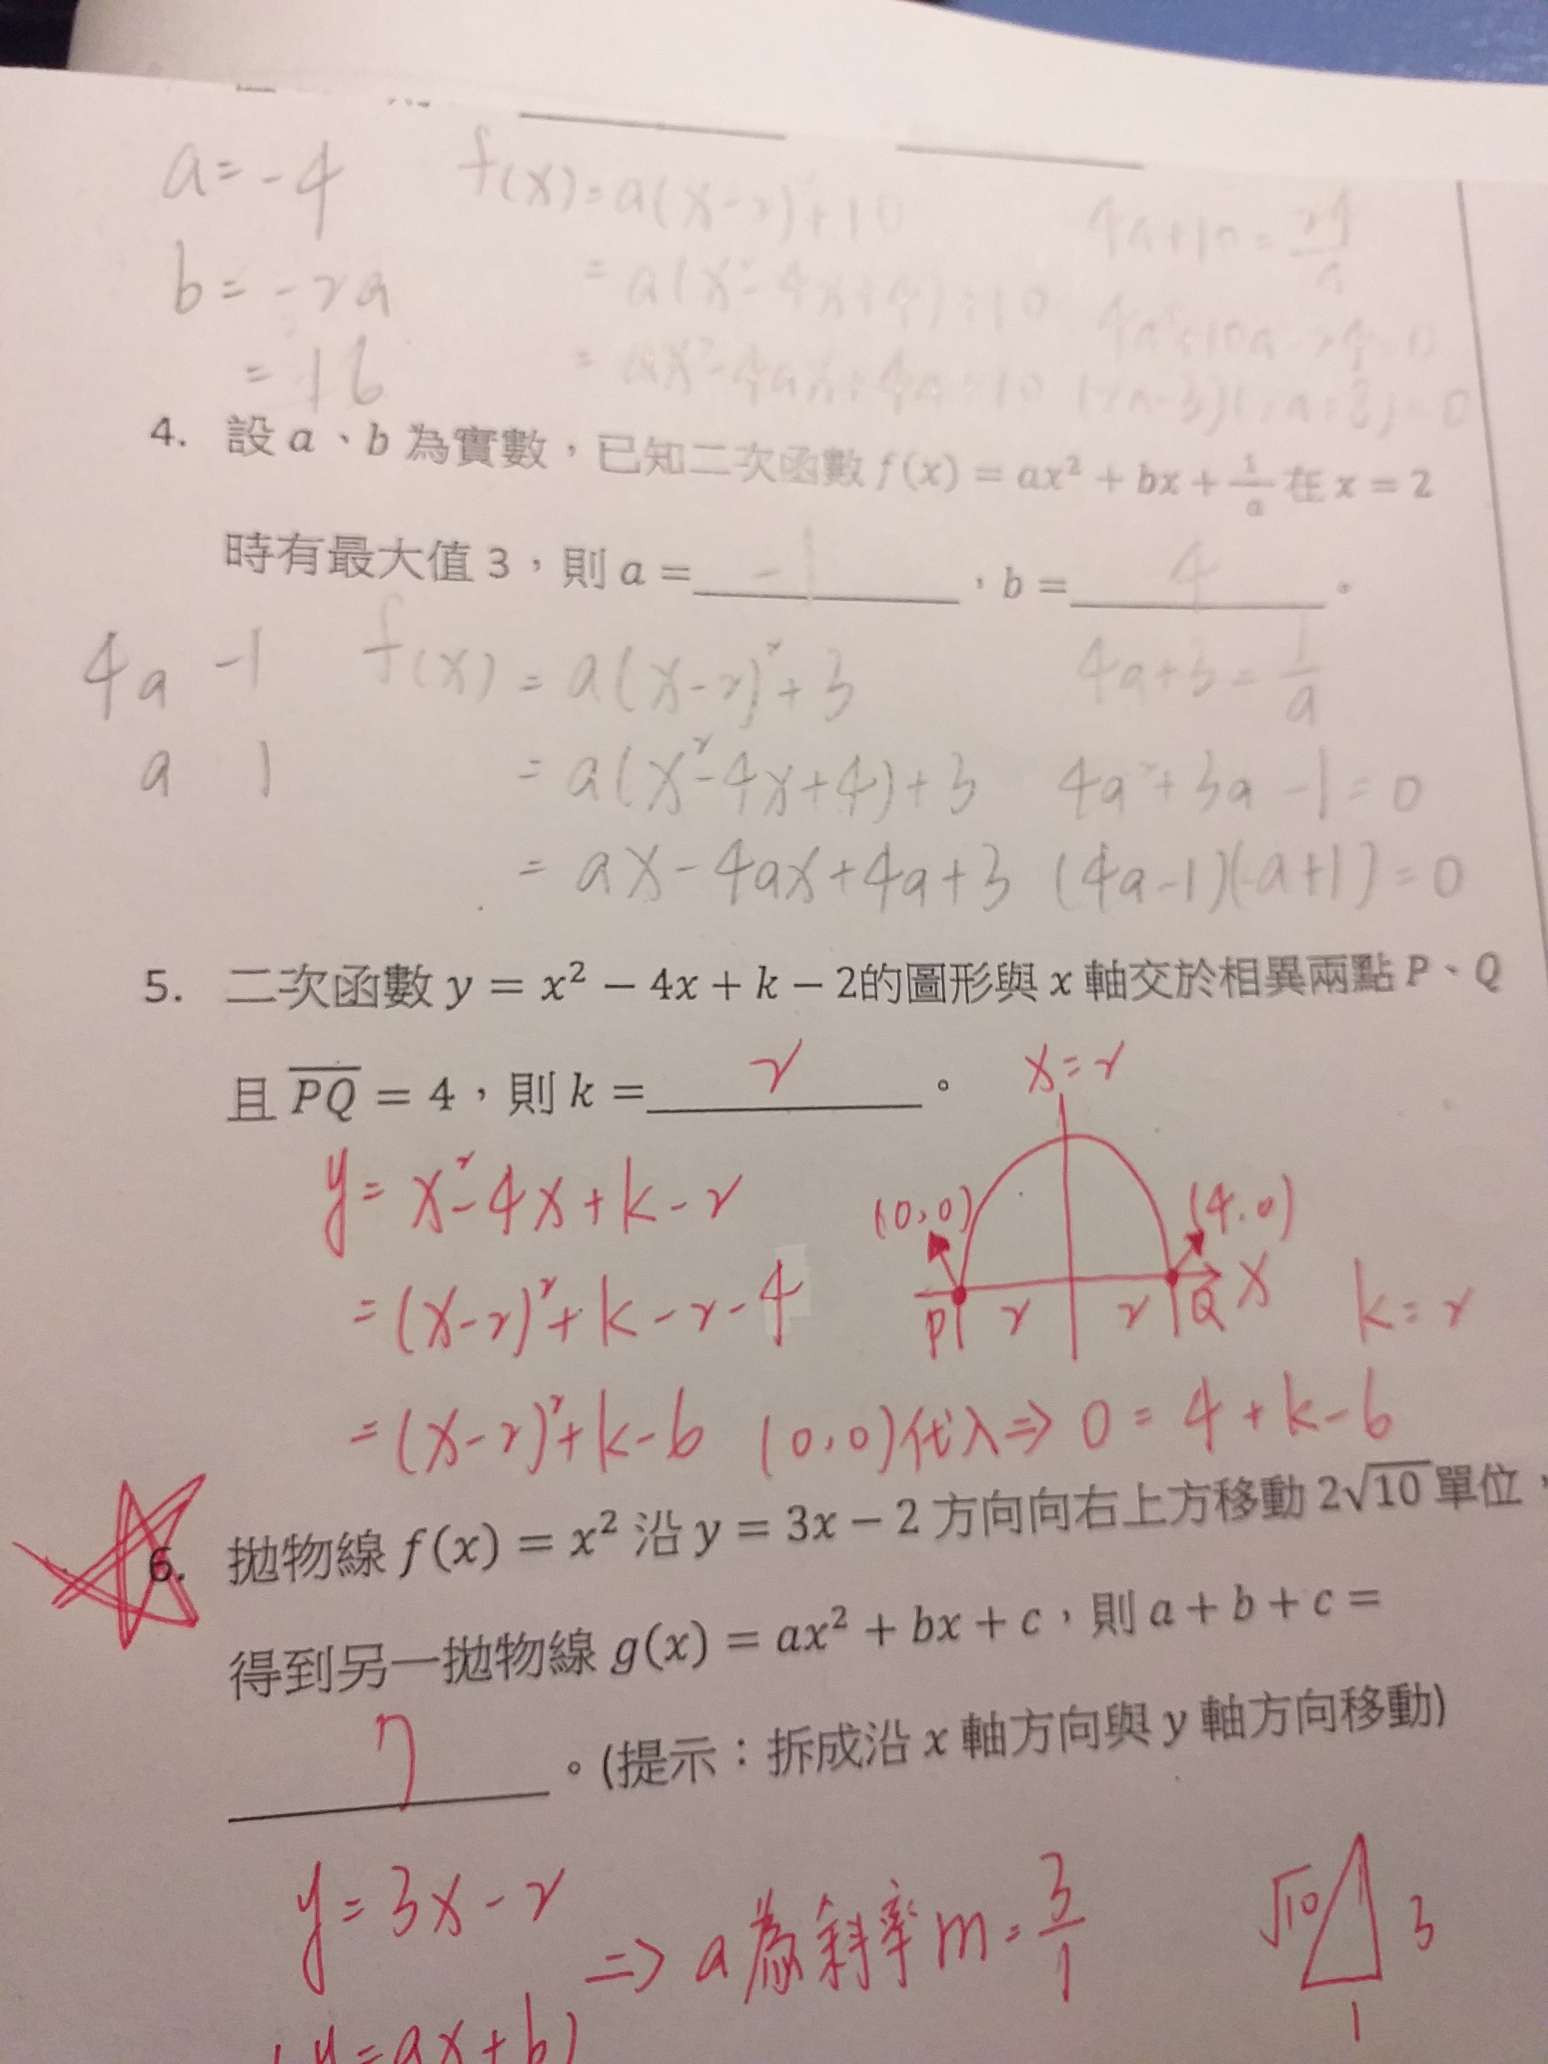 a=-4
b=-2a
=16
f(x)=a(x-2)²+10
=a(x²-4x+4)+10
=ax²-4ax+4a+10
4a+10=24/a
4a²+10a-24=0
4. 設 a、b 為實數，已知二次函數 f(x) = ax² + bx + 1/a 在 x = 2
時有最大值 3，則 a = -1 ，b = 4 。
4a -1
a 1
f(x) = a(x-2)²+3
= a(x²-4x+4)+3
= ax-4ax+4a+3
4a+3=1/a
4a²+3a-1=0
(4a-1)(a+1)=0
5. 二次函數 y = x² − 4x + k − 2的圖形與 x 軸交於相異兩點 P、Q
且 PQ = 4，則 k = 2 。
x=2
y= x²-4x+k-2
=(x-2)²+k-2-4
=(x-2)²+k-6
(0,0)
(4.0)
P 2 2 Q x
k=2
(0,0)代入⇒ 0=4+k-6
6. 拋物線 f(x) = x² 沿 y = 3x − 2 方向向右上方移動 2√10 單位，
得到另一拋物線 g(x) = ax² + bx + c，則 a + b + c =
7 。(提示：拆成沿 x 軸方向與 y 軸方向移動)
y=3x-2
⇒ a為斜率 m=3/1
√10 3
1
(y=ax+b)